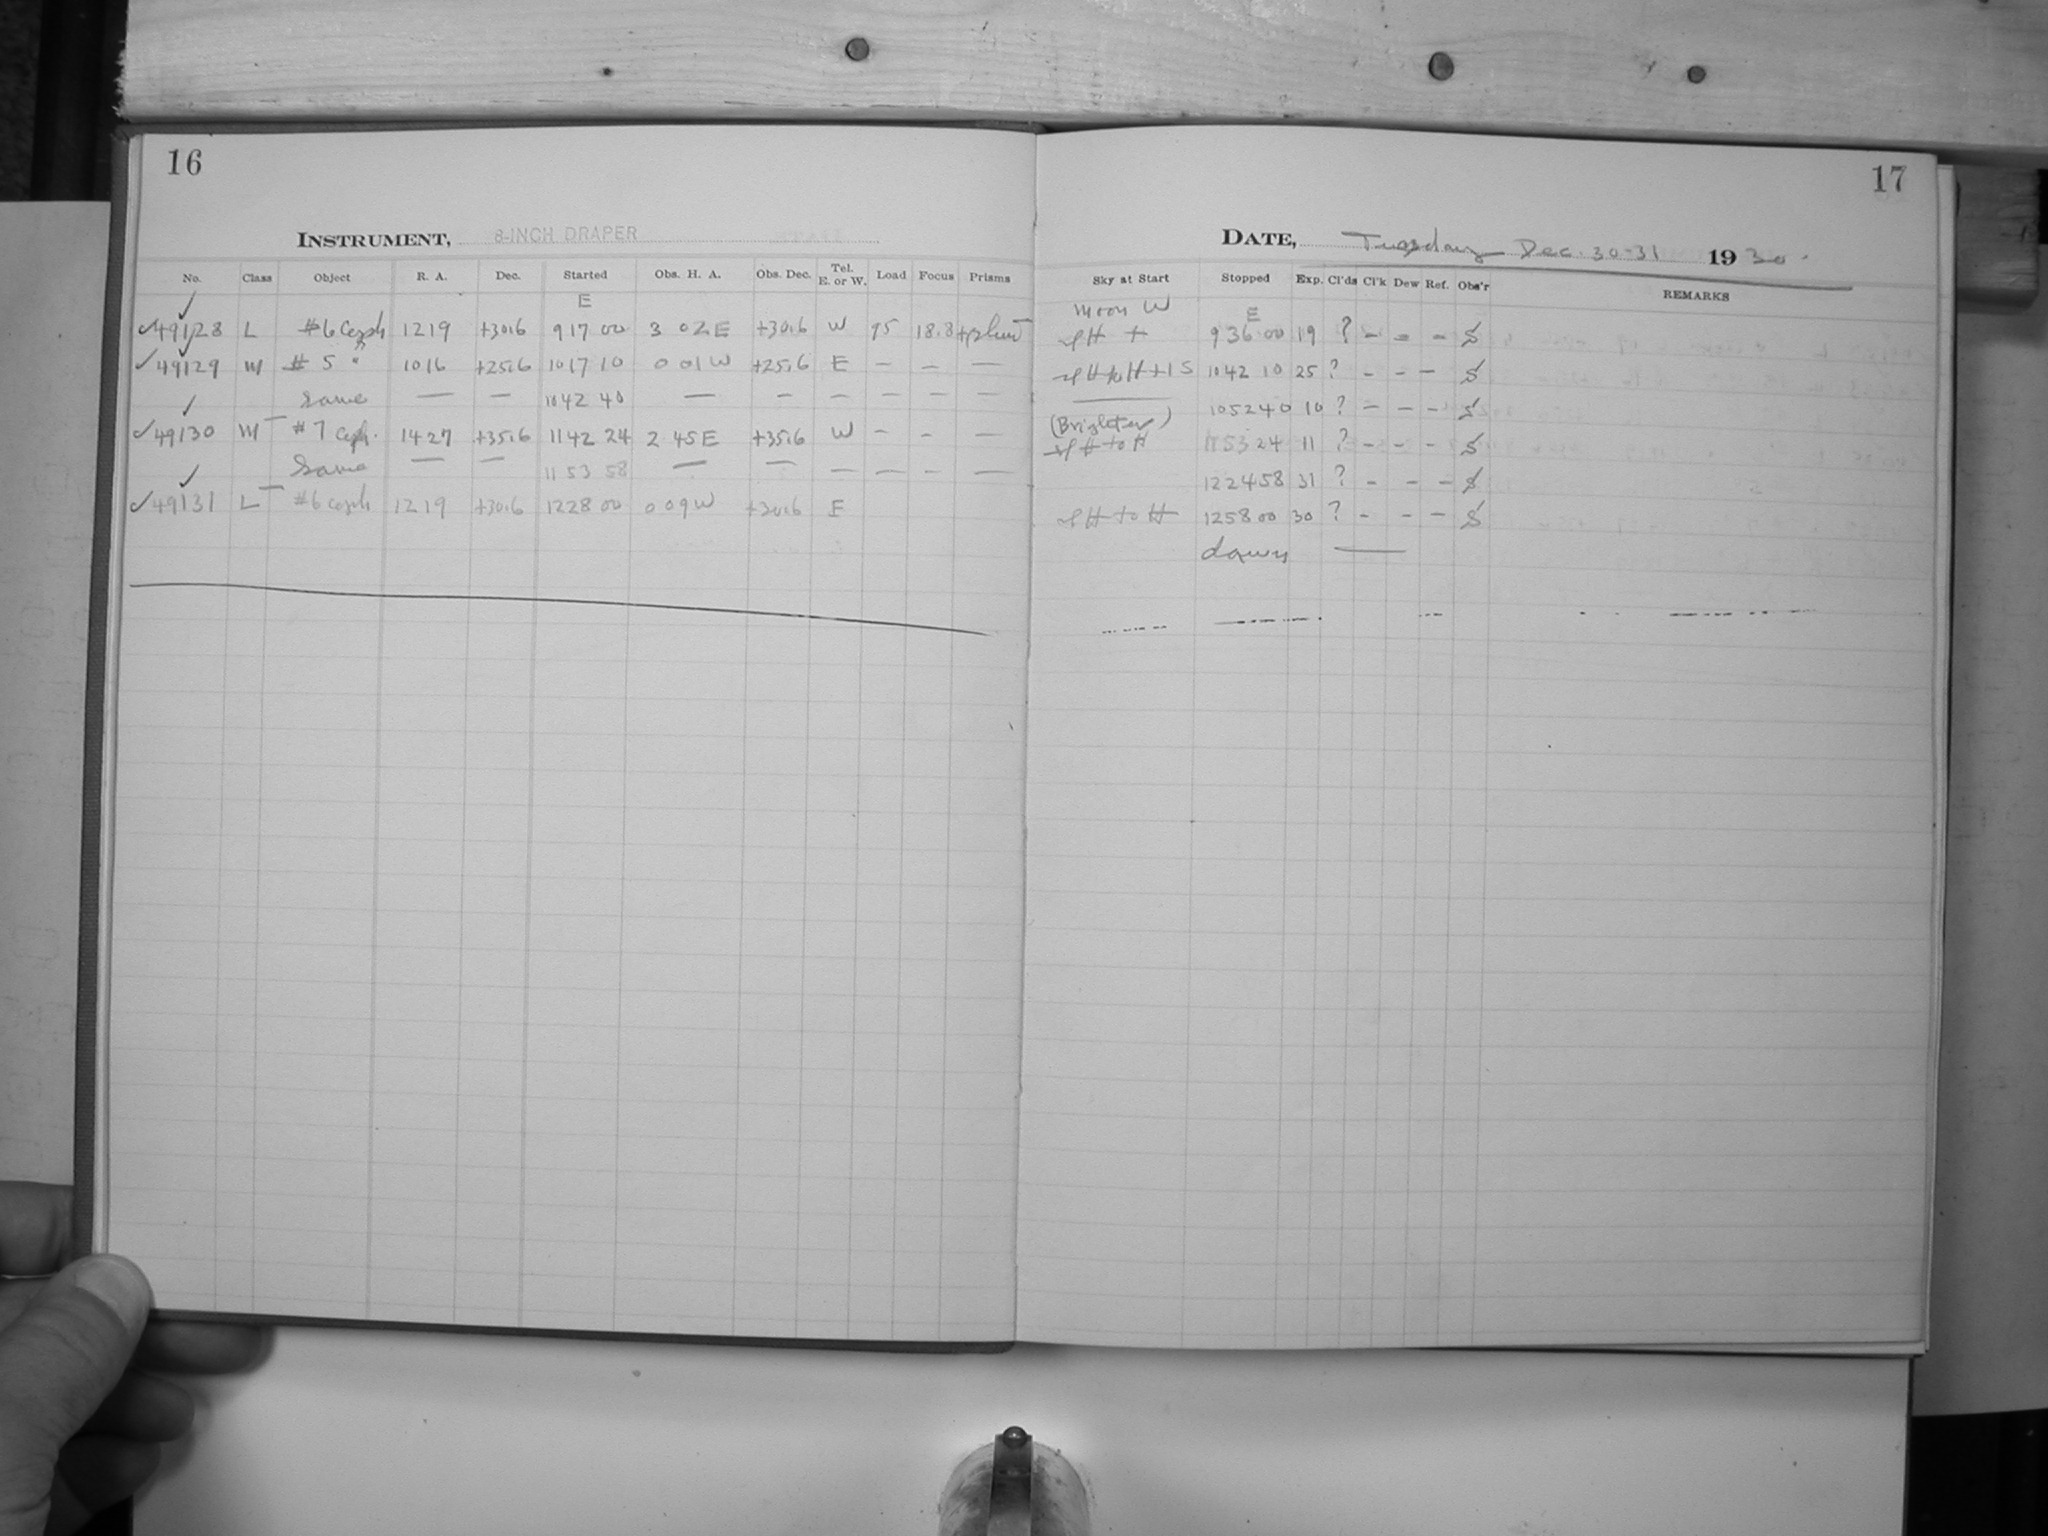 16
INSTRUMENT, 8-INCH DRAPER
No. Class Object R. A. Dec. Started Obs. H. A. Obs. Dec. Tel. E. or W. Load Focus Prisms
E
✓49128 L #6 Ceph 12 19 +30.6 9 17 00 3 02 E +30.6 W 95 18.8
✓49129 M # 5 " 10 16 +25.6 10 17 10 0 01 W +25.6 E — — —
Same — — 10 42 40 — — — — — —
✓49130 M # 7 Ceph. 14 27 +35.6 11 42 24 2 45 E +35.6 W — — —
Same — — 11 53 58 — — — — — —
✓49131 L #6 Ceph 12 19 +30.6 12 28 00 0 09 W +30.6 E
17
DATE, Tuesday Dec. 30-31 1930.
Sky at Start Stopped Exp. Cl'ds Cl'k Dew Ref. Obs'r REMARKS
Moon W E
9 36 00 19 ? – – – S
10 42 10 25 ? – – – S
10 52 40 10 ? – – – S
(Brighter)
11 53 24 11 ? – – – S
12 24 58 31 ? – – – S
12 58 00 30 ? – – – S
dawn —